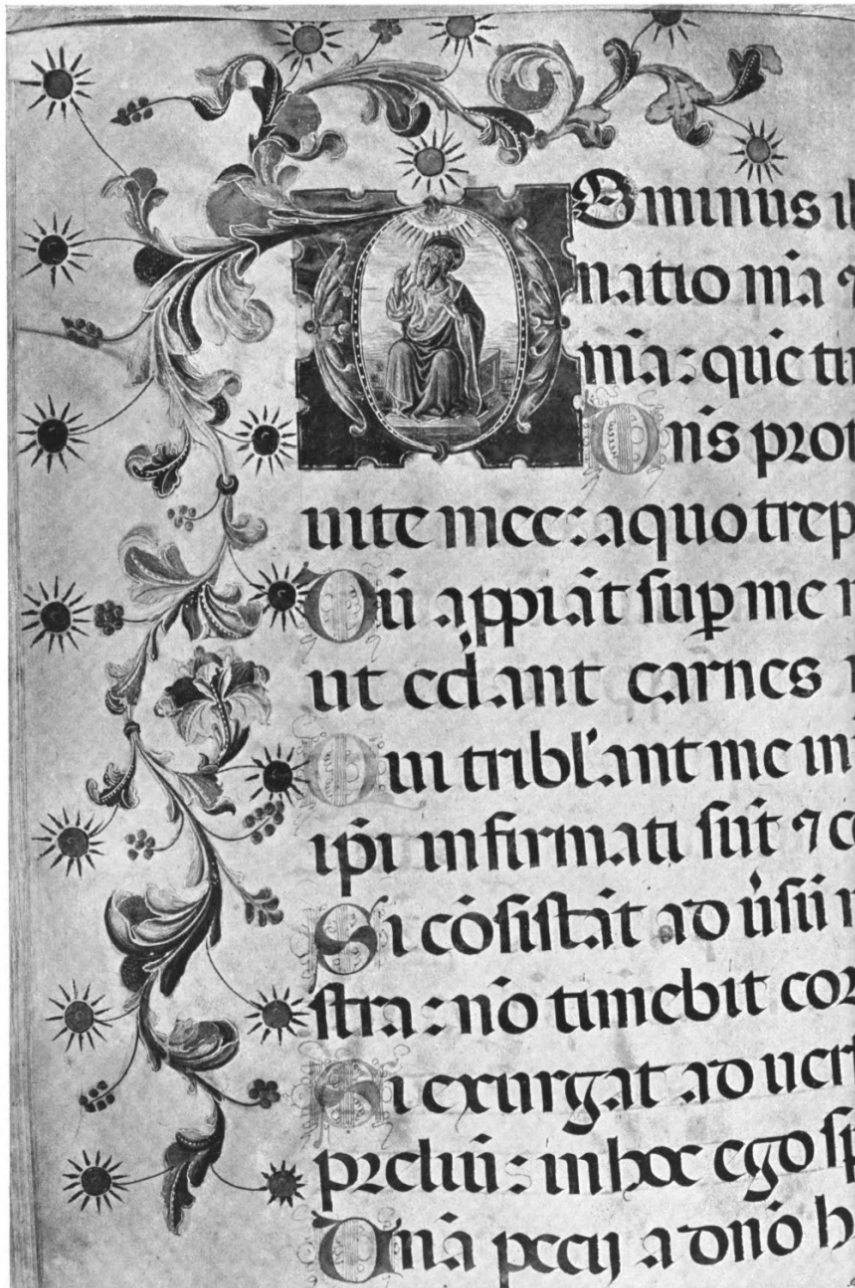 Dominus il
natio m̄a ⁊
m̄a: quē ti
Dn̄s prot
uite mee: a quo trep
Dū appiāt sup̱ me n
ut edāt carnes
Qui tribl'ant me in
ip̄i infirmati sūt ⁊ c
Si cōsistāt ad ūsū
stra: nō timebit cor
Si exurgat ad uer
preliū: in hoc ego sp
Unā pecij a dnō h